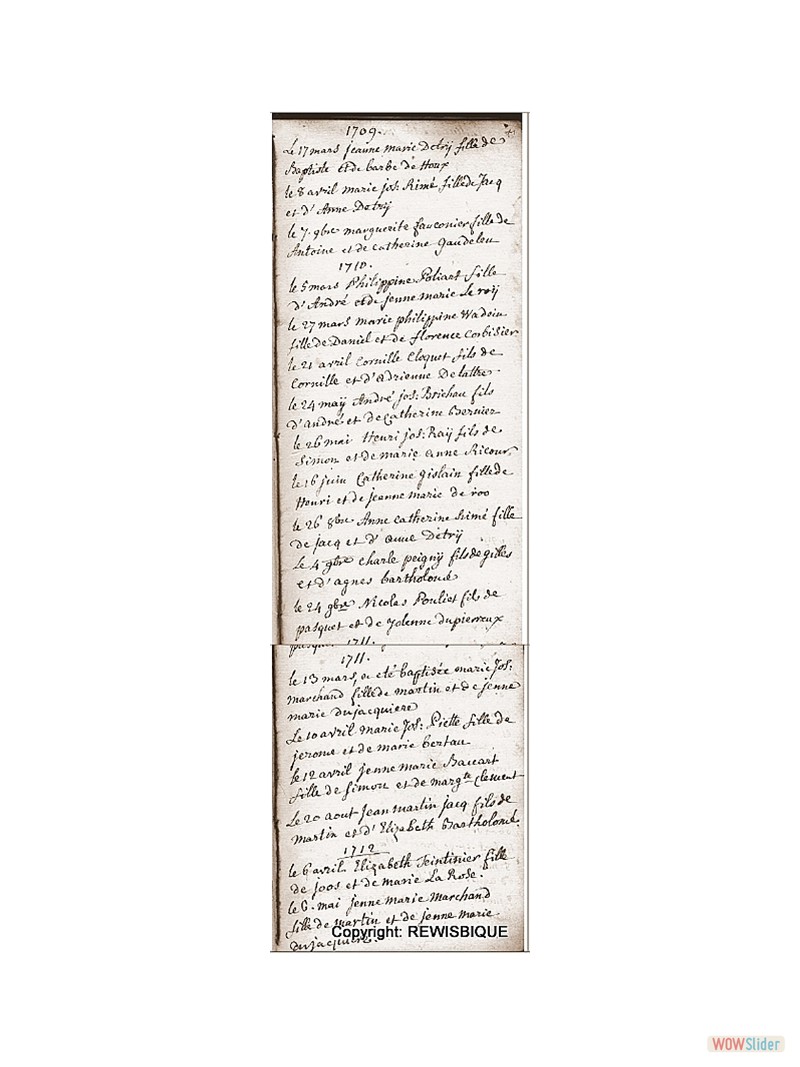 1709.
Le 17 mars jeanne marie Detrÿ fille de
Baptiste et de barbe de Houx
le 8 avril marie jos: Rimé fille de Jacq
et d'Anne Detrÿ
le 7. 9bre marguerite fauconier fille de
Antoine et de Catherine Gaudeleu
1710.
le 5 mars Philippine Poliart fille
d'André et de jenne marie le roÿ
le 27 mars marie philippine Wadoin
fille de Daniel et de florence Corbisier
le 21 avril Cornille Cloquet fils de
Cornille et d'adrienne Delattre
le 24 maÿ André jos: Brichau fils
d'andré et de Catherine Bernier
le 26 mai Henri jos: Raÿ fils de
Simon et de marie anne Ricour
le 16 juin Catherine gislain fille de
Henri et de jeanne marie de roo
le 26 8bre Anne catherine Rimé fille
de jacq et d'anne Detrÿ
Le 4 9bre Charle peignÿ fils de gilles
et d'agnes bartholomé
le 24 9bre Nicolas Pouliet fils de
pasquet et de Jolenne dupierreux
1711.
1711.
le 13 mars, a eté baptisée marie Jos:
marchand fille de martin et de jenne
marie dujacquiere
Le 10 avril marie Jos: Piette fille de
jerome et de marie bertau
le 12 avril jenne marie Baccart
fille de Simon et de margte Clement
Le 20 aout Jean martin jacq fils de
Martin et d'Elizabeth Bartholomé.
1712
le 6 avril. Elizabeth Teintinier fille
de joos et de marie La Rose.
le 6. mai jenne marie Marchand
fille de martin et de jenne marie
dujacquiere.
Copyright: REWISBIQUE
WOWSlider